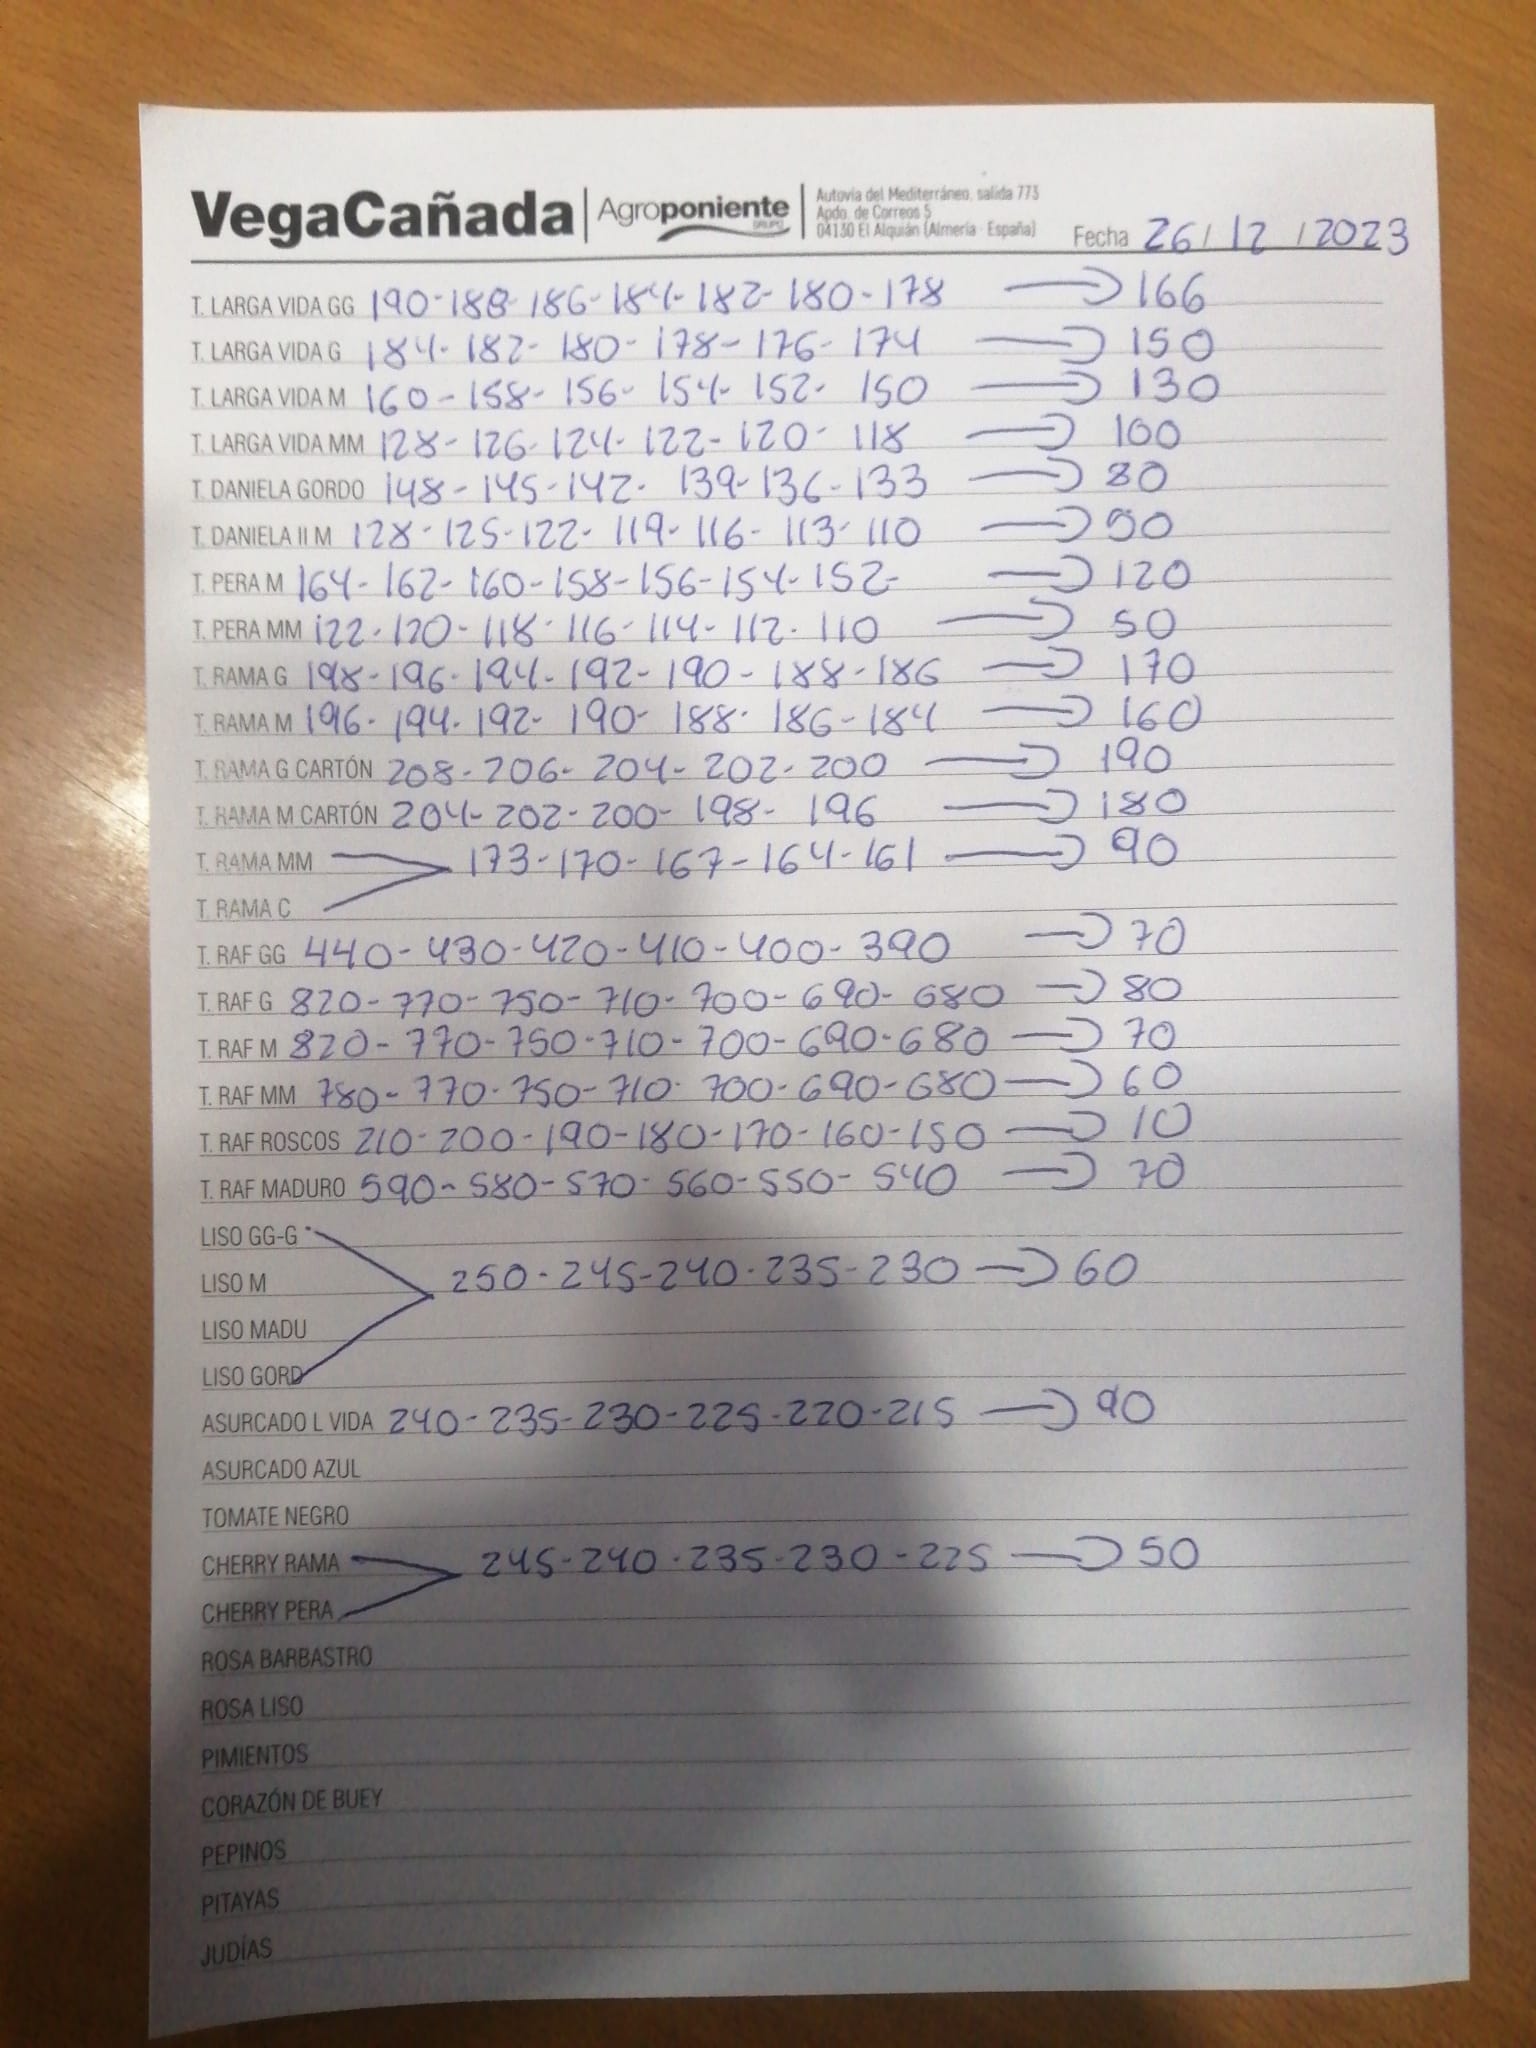 VegaCañada Agroponiente GRUPO
Autovía del Mediterráneo, salida 773
Apdo. de Correos 5
04130 El Alquián (Almería - España)
Fecha 26/12/2023
T. LARGA VIDA GG 190-188-186-184-182-180-178 → 166
T. LARGA VIDA G 184-182-180-178-176-174 → 150
T. LARGA VIDA M 160-158-156-154-152-150 → 130
T. LARGA VIDA MM 128-126-124-122-120-118 → 100
T. DANIELA GORDO 148-145-142-139-136-133 → 80
T. DANIELA II M 128-125-122-119-116-113-110 → 50
T. PERA M 164-162-160-158-156-154-152- → 120
T. PERA MM 122-120-118-116-114-112-110 → 50
T. RAMA G 198-196-194-192-190-188-186 → 170
T. RAMA M 196-194-192-190-188-186-184 → 160
T. RAMA G CARTÓN 208-206-204-202-200 → 190
T. RAMA M CARTÓN 204-202-200-198-196 → 180
T. RAMA MM 173-170-167-164-161 → 90
T. RAMA C
T. RAF GG 440-430-420-410-400-390 → 70
T. RAF G 820-770-750-710-700-690-680 → 80
T. RAF M 820-770-750-710-700-690-680 → 70
T. RAF MM 780-770-750-710-700-690-680 → 60
T. RAF ROSCOS 210-200-190-180-170-160-150 → 10
T. RAF MADURO 590-580-570-560-550-540 → 70
LISO GG-G
LISO M 250-245-240-235-230 → 60
LISO MADU
LISO GORD
ASURCADO L VIDA 240-235-230-225-220-215 → 90
ASURCADO AZUL
TOMATE NEGRO
CHERRY RAMA 245-240-235-230-225 → 50
CHERRY PERA
ROSA BARBASTRO
ROSA LISO
PIMIENTOS
CORAZÓN DE BUEY
PEPINOS
PITAYAS
JUDÍAS